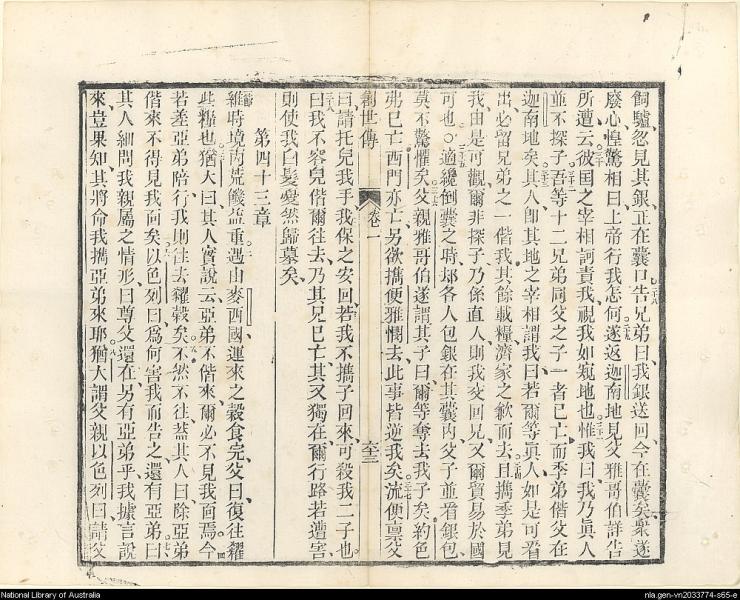 飼驢忽見其銀正在囊口告兄弟曰我銀送回今在囊矣衆遂
廢心惶驚相曰上帝行我怎何遂返迦南地見父雅哥伯詳告
所遭云彼国之宰相訶責我視我如窺地也惟我曰我乃眞人
並不探子吾等十二兄弟同父之子一者已亡而季弟偕父在
迦南地矣其人卽其地之宰相謂我曰若爾等眞人如是可看
出必留兄弟之一偕我其餘載糧濟家之歉而去且攜季弟見
我由是可觀爾非探子乃係直人則我交回兄又爾貿易於國
可也○適纔倒囊之時却各人包銀在其囊內父子並看銀包
莫不驚懼矣父親雅哥伯遂謂其子曰爾等奪去我子矣約色
弗已亡西門亦亡另欲攜便雅憫去此事皆逆我矣流便稟父
創世傳 卷一 六三
曰請托兒我手我保之安回若我不攜子回來可殺我二子也
曰我不容兒偕爾往去乃其兄已亡其又獨在爾行路若遭害
則使我白髮憂然歸墓矣
第四十三章
維時境內荒饑益重遇由麥西國運來之穀食完父曰復往糴
些糧也猶大曰其人實說云亞弟不偕來爾必不見我面焉今
若差亞弟陪行我則往去糴穀矣不然不往蓋其人曰除亞弟
偕來不得見我面矣以色列曰爲何害我而告之還有亞弟曰
其人細問我親屬之情形曰尊父還在另有亞弟乎我據言說
來豈果知其將命我攜亞弟來耶猶大謂父親以色列曰請父
National Library of Australia
nla.gen-vn2033774-s65-e